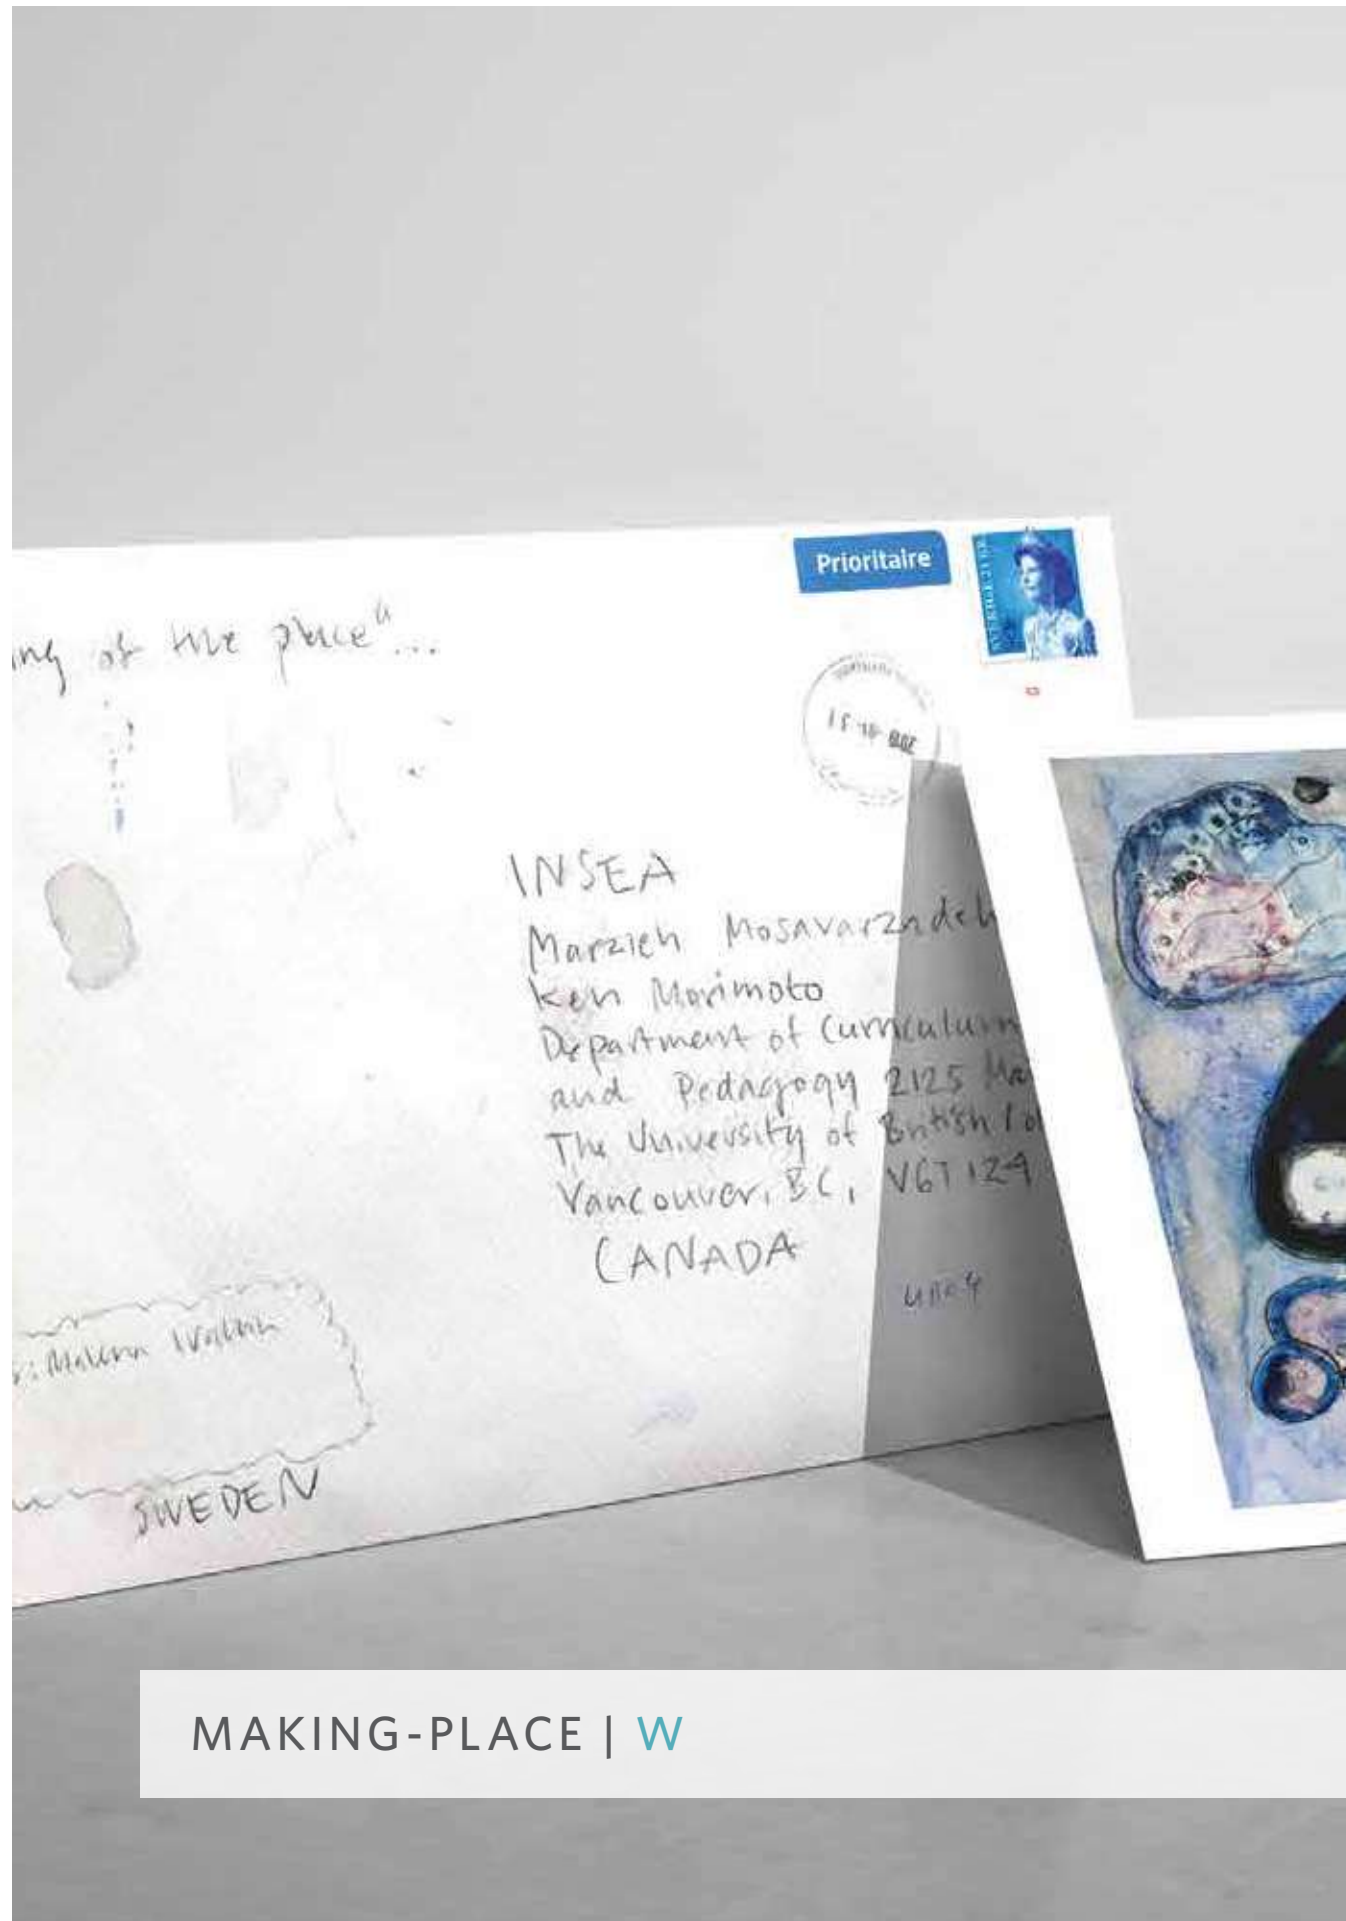 Prioritaire
SVERIGE
of the place"...
INSEA
Marzieh Mosavarzadeh
Ken Morimoto
Department of Curriculum
and Pedagogy 2125 Ma
The University of British Co
Vancouver, BC, V6T 1Z4
CANADA
Malena
SWEDEN
MAKING-PLACE | W